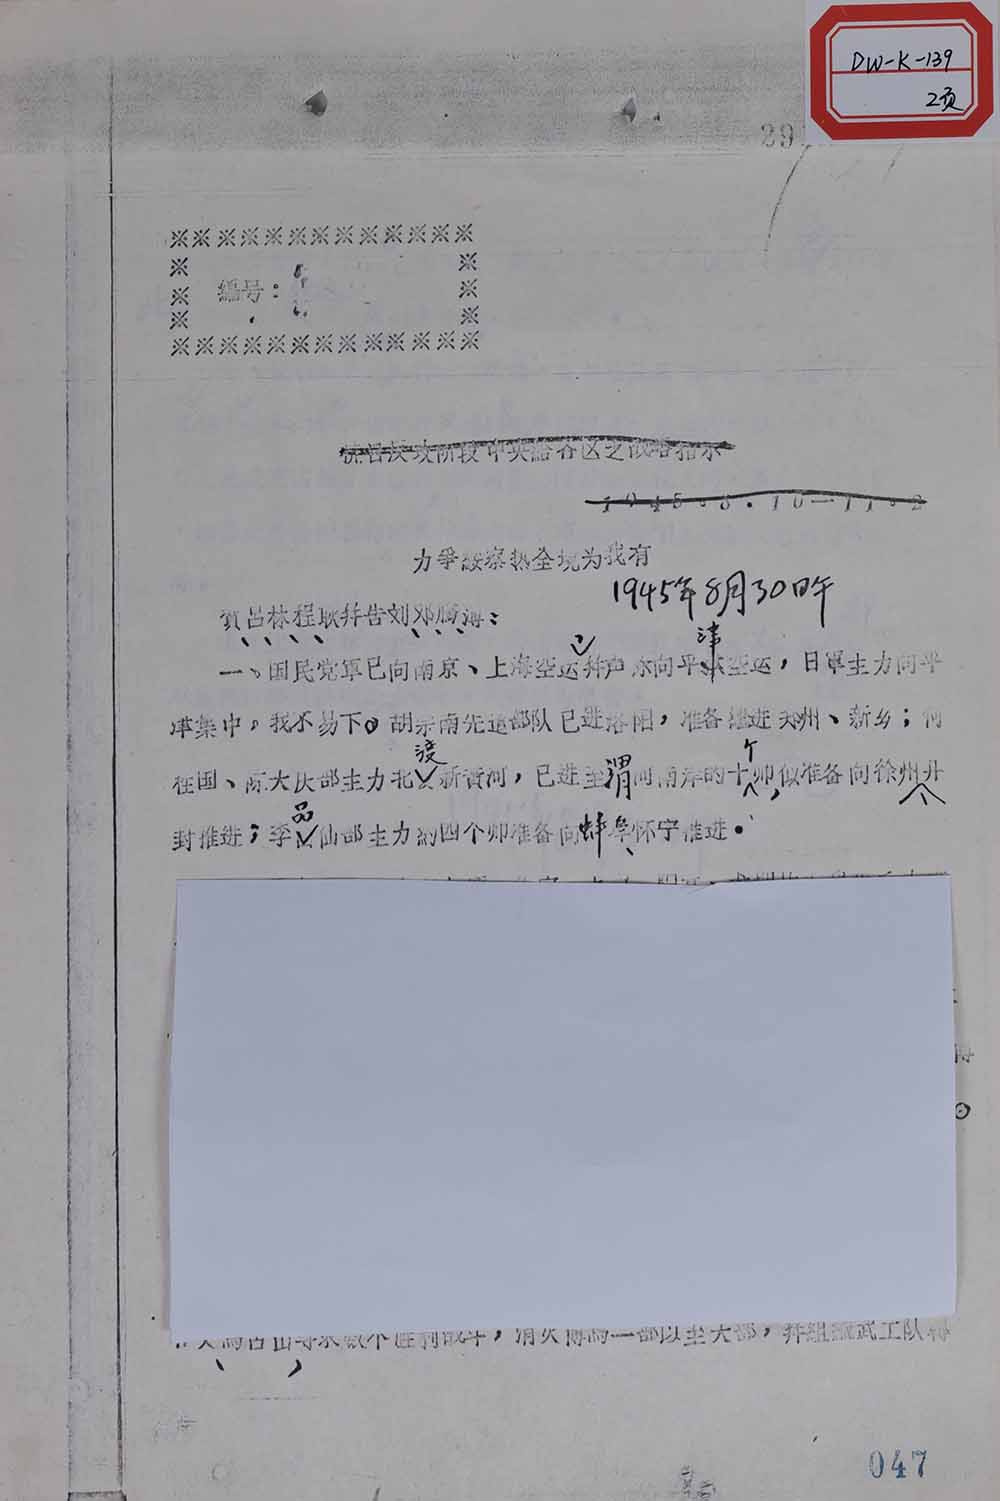 DW-K-139
2页
29
编号：
抗日反攻阶段中央给各区之战略指示
1945.8.10—11.2
力争绥察热全境为我有
1945年8月30日午
贺吕林程耿并告刘邓滕薄：
已 津
一、国民党军已向南京、上海空运并声 向平 空运，日军主力向平
津集中，我不易下。胡宗南先遣部队已进洛阳，准备继进郑州、新乡；何
渡 个
柱国、陈大庆部主力北 新黄河，已进至渭河南岸的十师似准备向徐州开
品
封推进；李 仙部主力的四个师准备向蚌阜怀宁推进。
求数个胜利战斗，消灭傅 一部以至大部，并组 武工队
047